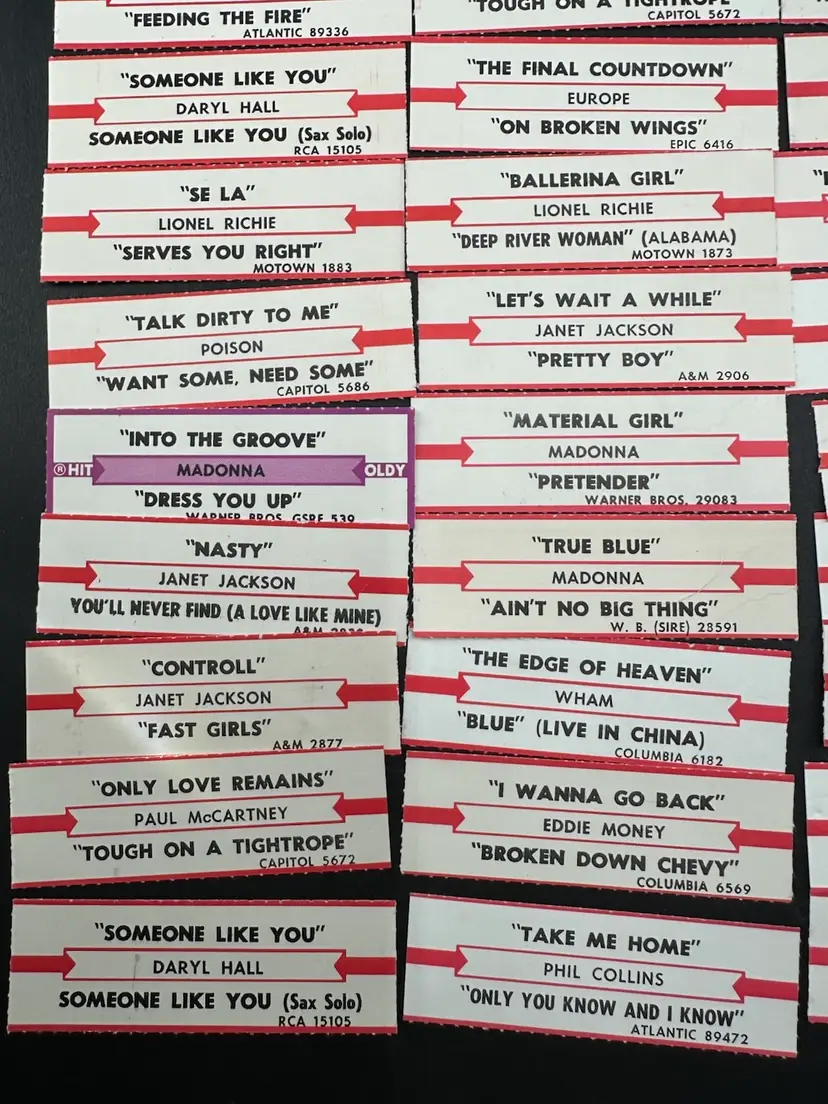 "FEEDING THE FIRE"
ATLANTIC 89336
"SOMEONE LIKE YOU"
DARYL HALL
SOMEONE LIKE YOU (Sax Solo)
RCA 15105
"SE LA"
LIONEL RICHIE
"SERVES YOU RIGHT"
MOTOWN 1883
"TALK DIRTY TO ME"
POISON
"WANT SOME, NEED SOME"
CAPITOL 5686
"INTO THE GROOVE"
®HIT MADONNA OLDY
"DRESS YOU UP"
WARNER BROS. GSRE 539
"NASTY"
JANET JACKSON
YOU'LL NEVER FIND (A LOVE LIKE MINE)
A&M
"CONTROLL"
JANET JACKSON
"FAST GIRLS"
A&M 2877
"ONLY LOVE REMAINS"
PAUL McCARTNEY
"TOUGH ON A TIGHTROPE"
CAPITOL 5672
"SOMEONE LIKE YOU"
DARYL HALL
SOMEONE LIKE YOU (Sax Solo)
RCA 15105
"TOUGH ON A TIGHTROPE"
CAPITOL 5672
"THE FINAL COUNTDOWN"
EUROPE
"ON BROKEN WINGS"
EPIC 6416
"BALLERINA GIRL"
LIONEL RICHIE
"DEEP RIVER WOMAN" (ALABAMA)
MOTOWN 1873
"LET'S WAIT A WHILE"
JANET JACKSON
"PRETTY BOY"
A&M 2906
"MATERIAL GIRL"
MADONNA
"PRETENDER"
WARNER BROS. 29083
"TRUE BLUE"
MADONNA
"AIN'T NO BIG THING"
W. B. (SIRE) 28591
"THE EDGE OF HEAVEN"
WHAM
"BLUE" (LIVE IN CHINA)
COLUMBIA 6182
"I WANNA GO BACK"
EDDIE MONEY
"BROKEN DOWN CHEVY"
COLUMBIA 6569
"TAKE ME HOME"
PHIL COLLINS
"ONLY YOU KNOW AND I KNOW"
ATLANTIC 89472